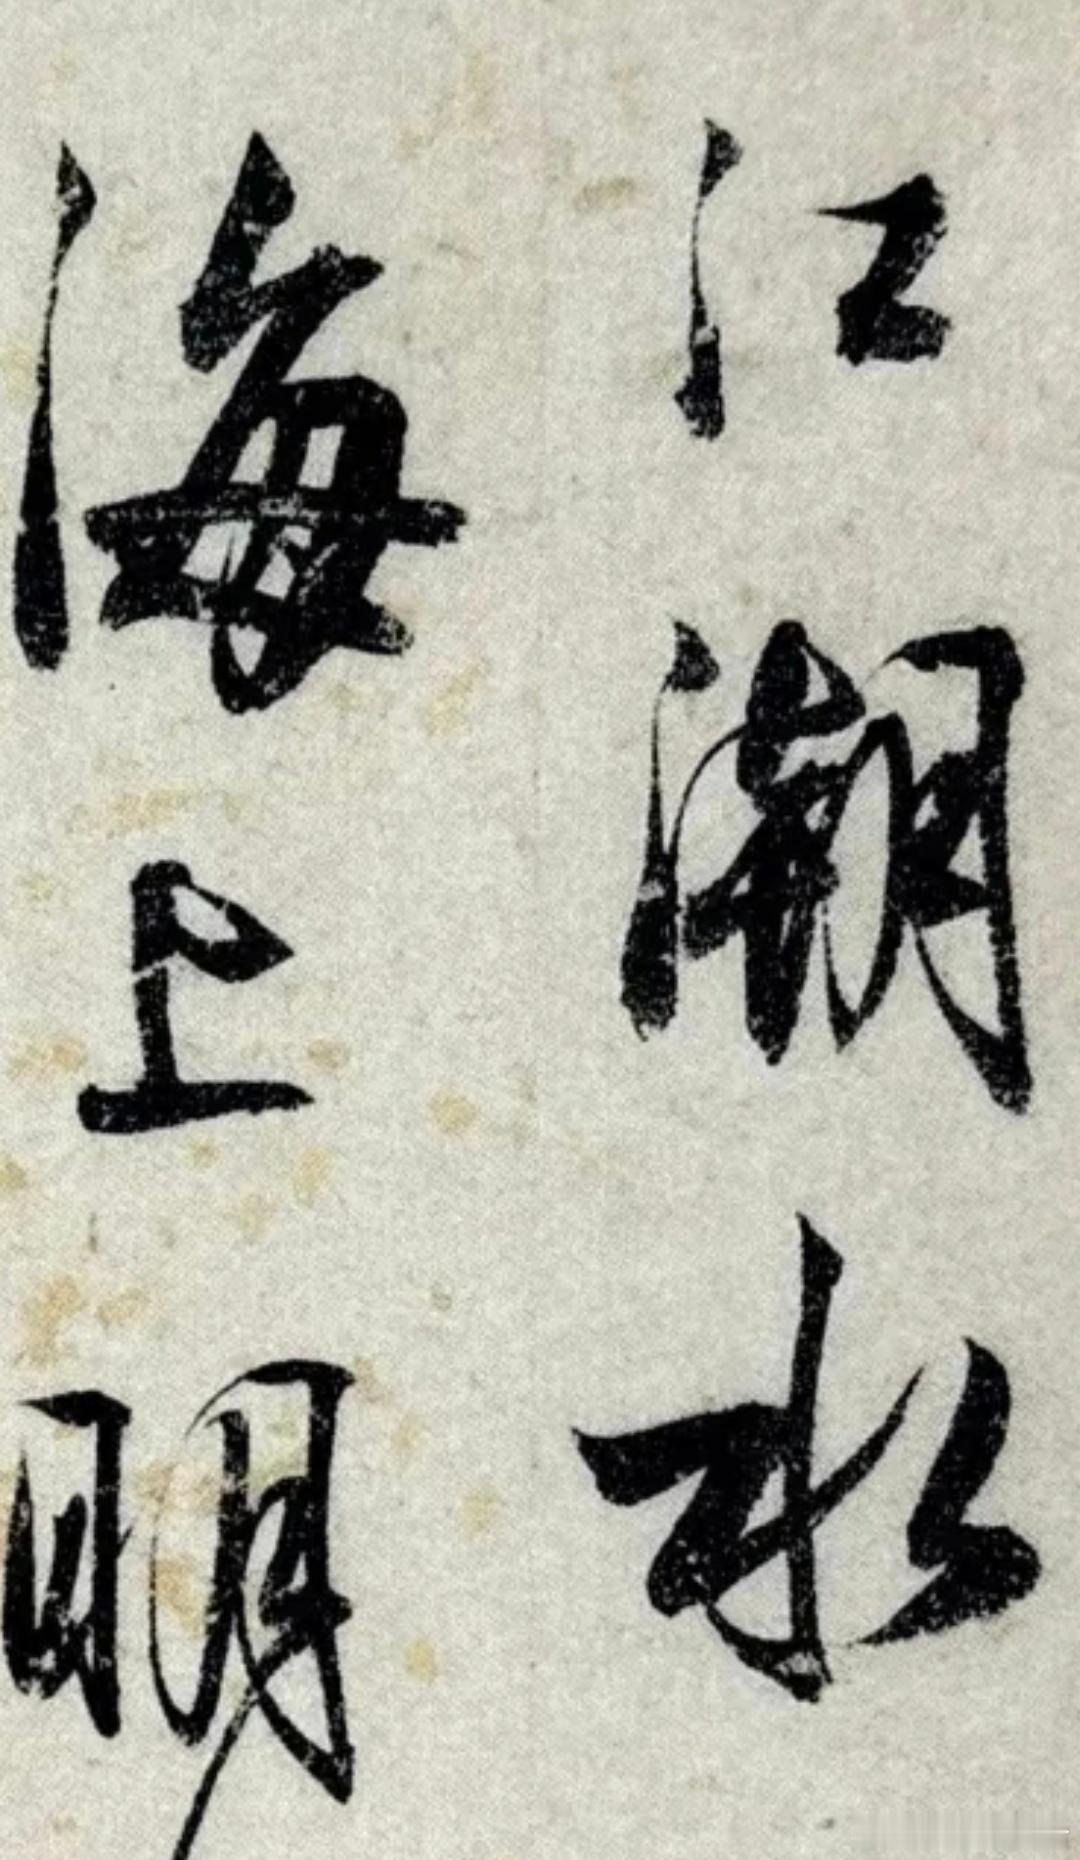 江潮水
海上明